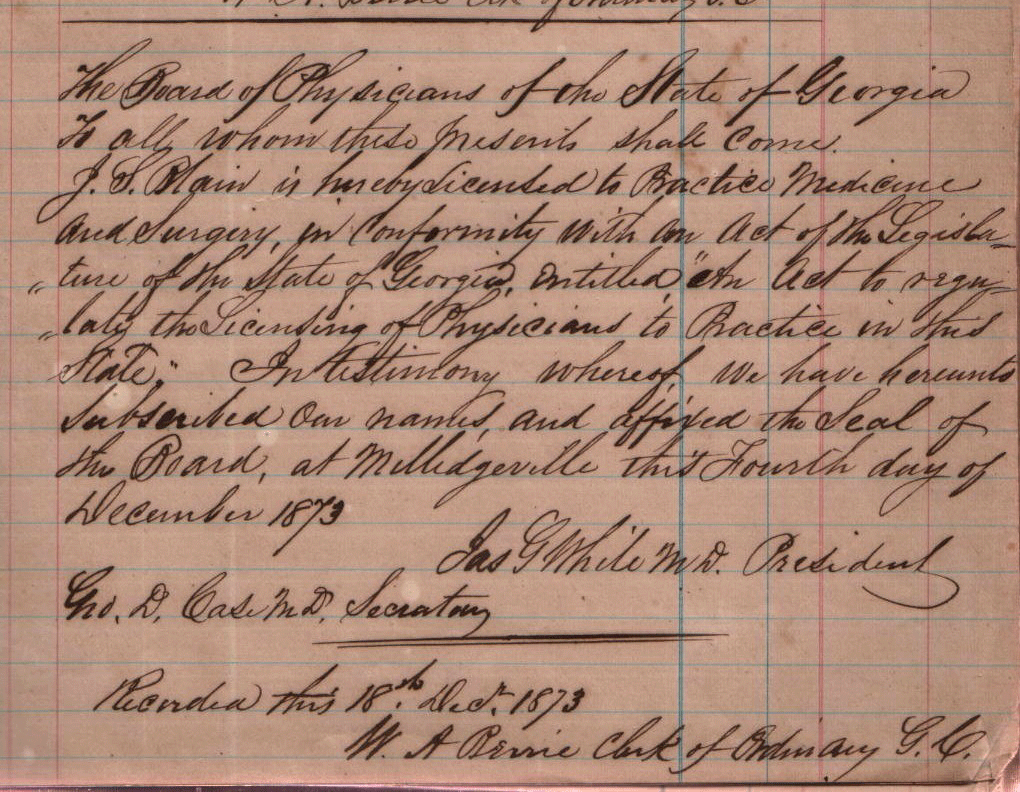 The Board of Physicians of the State of Georgia
To all whom these presents shall come.
J. S. Blain is hereby Licensed to Practice Medicine
and Surgery, in Conformity with an Act of the Legisla-
„ ture of the State of Georgia, entitled, "An Act to regu-
„ late the Licensing of Physicians to Practice in this
State." In testimony whereof, we have hereunto
subscribed our names, and affixed the Seal of
the Board, at Milledgeville this Fourth day of
December 1873
Jas G White M D. President
Geo. D. Case M D. Secratary
Recorded this 18.th Dec.r 1873
W. A Berrie Clerk of Ordinary G. C.